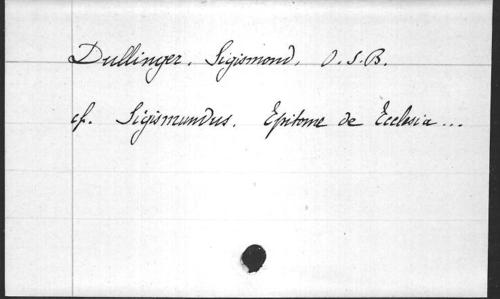 Dullinger, Sigismond, O.S.B.
cf. Sigismundus. Epitome de Ecclesia...